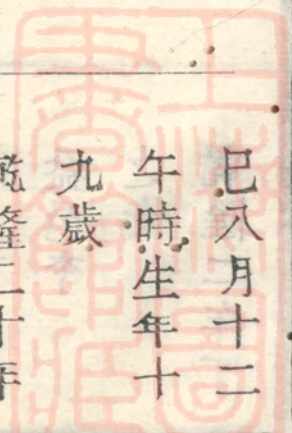 巳八月十二
午時生年十
九歲
乾隆二十年